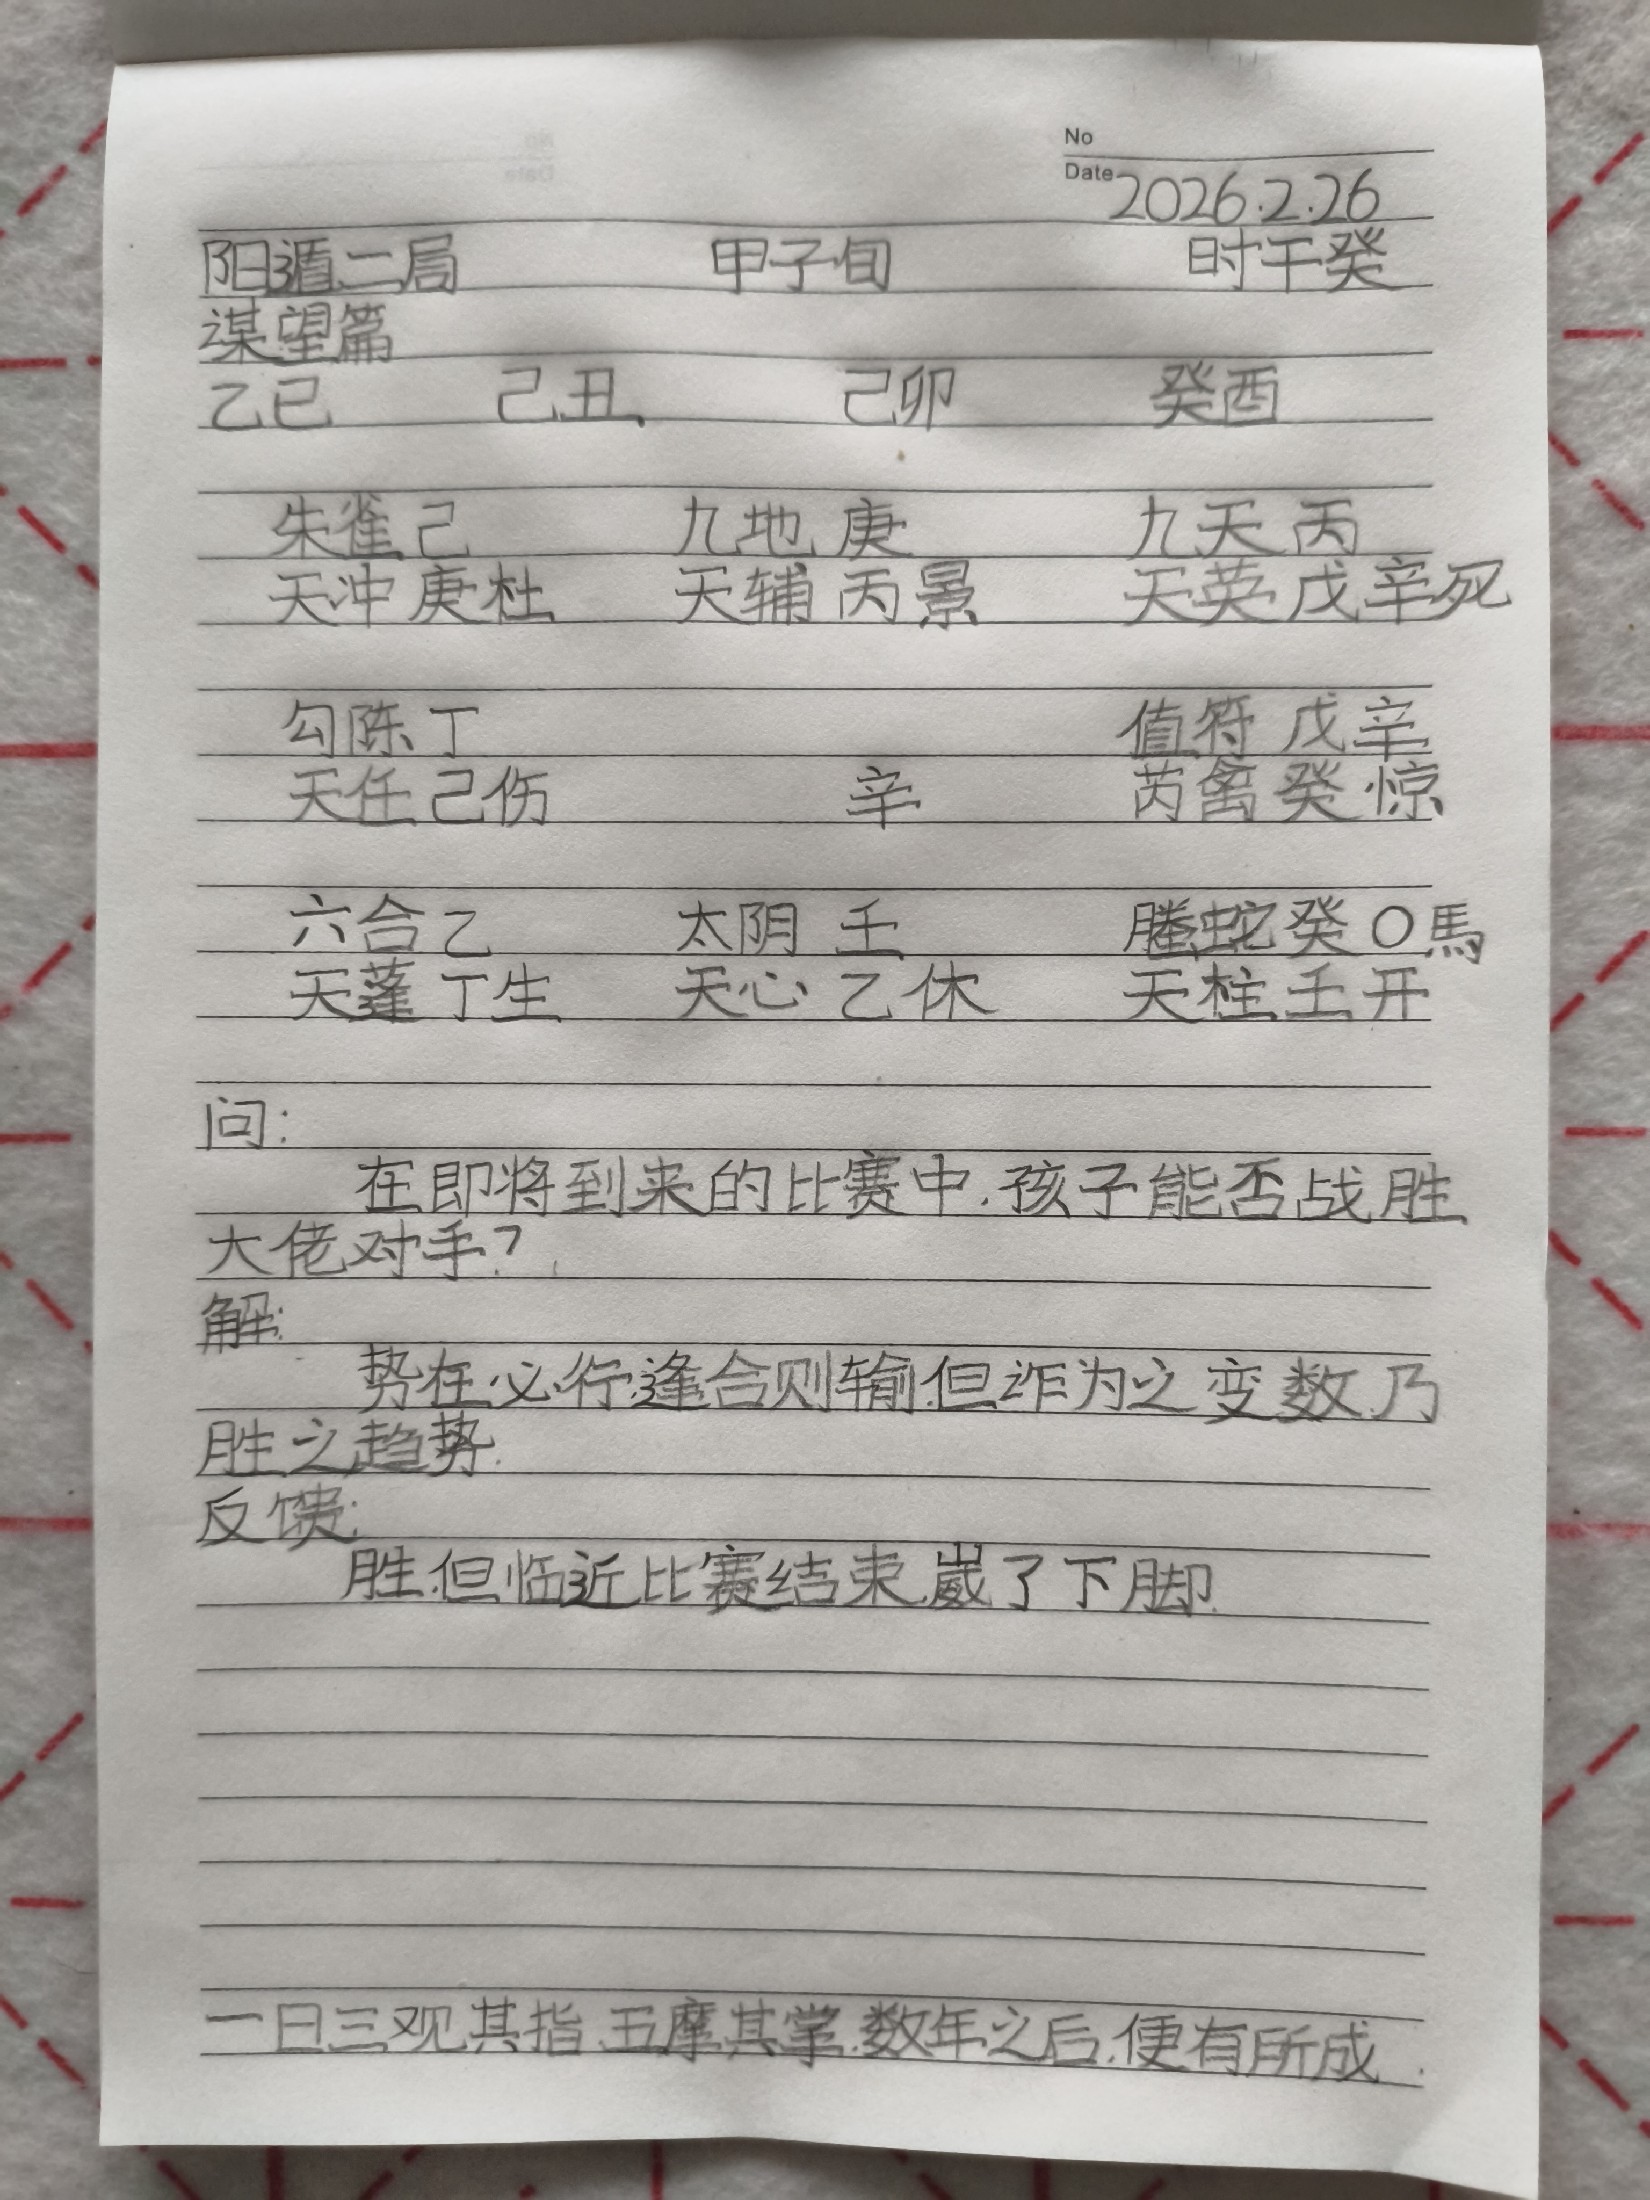 No
Date 2026.2.26
阳遁二局 甲子旬 时干癸
谋望篇
乙巳 己丑、 己卯 癸酉
朱雀己 九地庚 九天丙
天冲庚杜 天辅丙景 天英戊辛死
勾陈丁 值符戊辛
天任己伤 辛 芮禽癸惊
六合乙 太阴壬 螣蛇癸〇馬
天蓬丁生 天心乙休 天柱壬开
问:
在即将到来的比赛中,孩子能否战胜
大佬对手?
解:
势在必行,逢合则输,但诈为之变数,乃
胜之趋势.
反馈:
胜,但临近比赛结束,崴了下脚.
一日三观其指,五摩其掌,数年之后,便有所成.